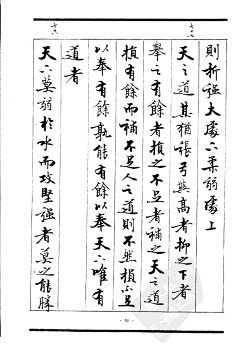 七七
則折強大處下柔弱處上
天之道其猶張弓與高者抑之下者
舉之有餘者損之不足者補之天之道
損有餘而補不足人之道則不然損不足
以奉有餘孰能有餘以奉天下唯有
道者
七八
天下莫弱於水而攻堅強者莫之能勝